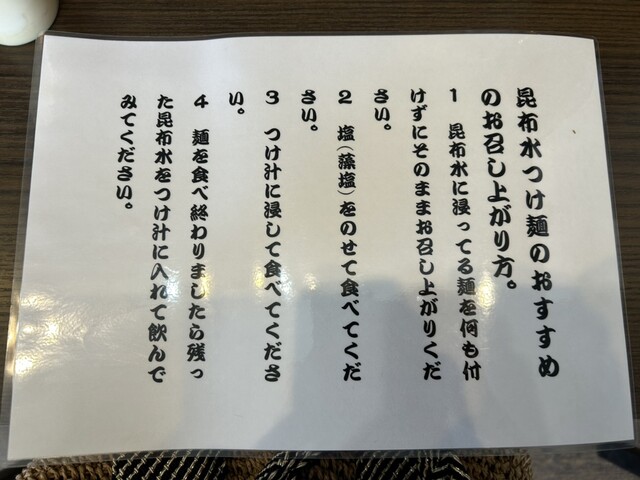 昆布水つけ麺のおすすめ
のお召し上がり方。
1 昆布水に浸ってる麺を何も付
けずにそのままお召し上がりくだ
さい。
2 塩(藻塩)をのせて食べてくだ
さい。
3 つけ汁に浸して食べてくださ
い。
4 麺を食べ終わりましたら残っ
た昆布水をつけ汁に入れて飲んで
みてください。